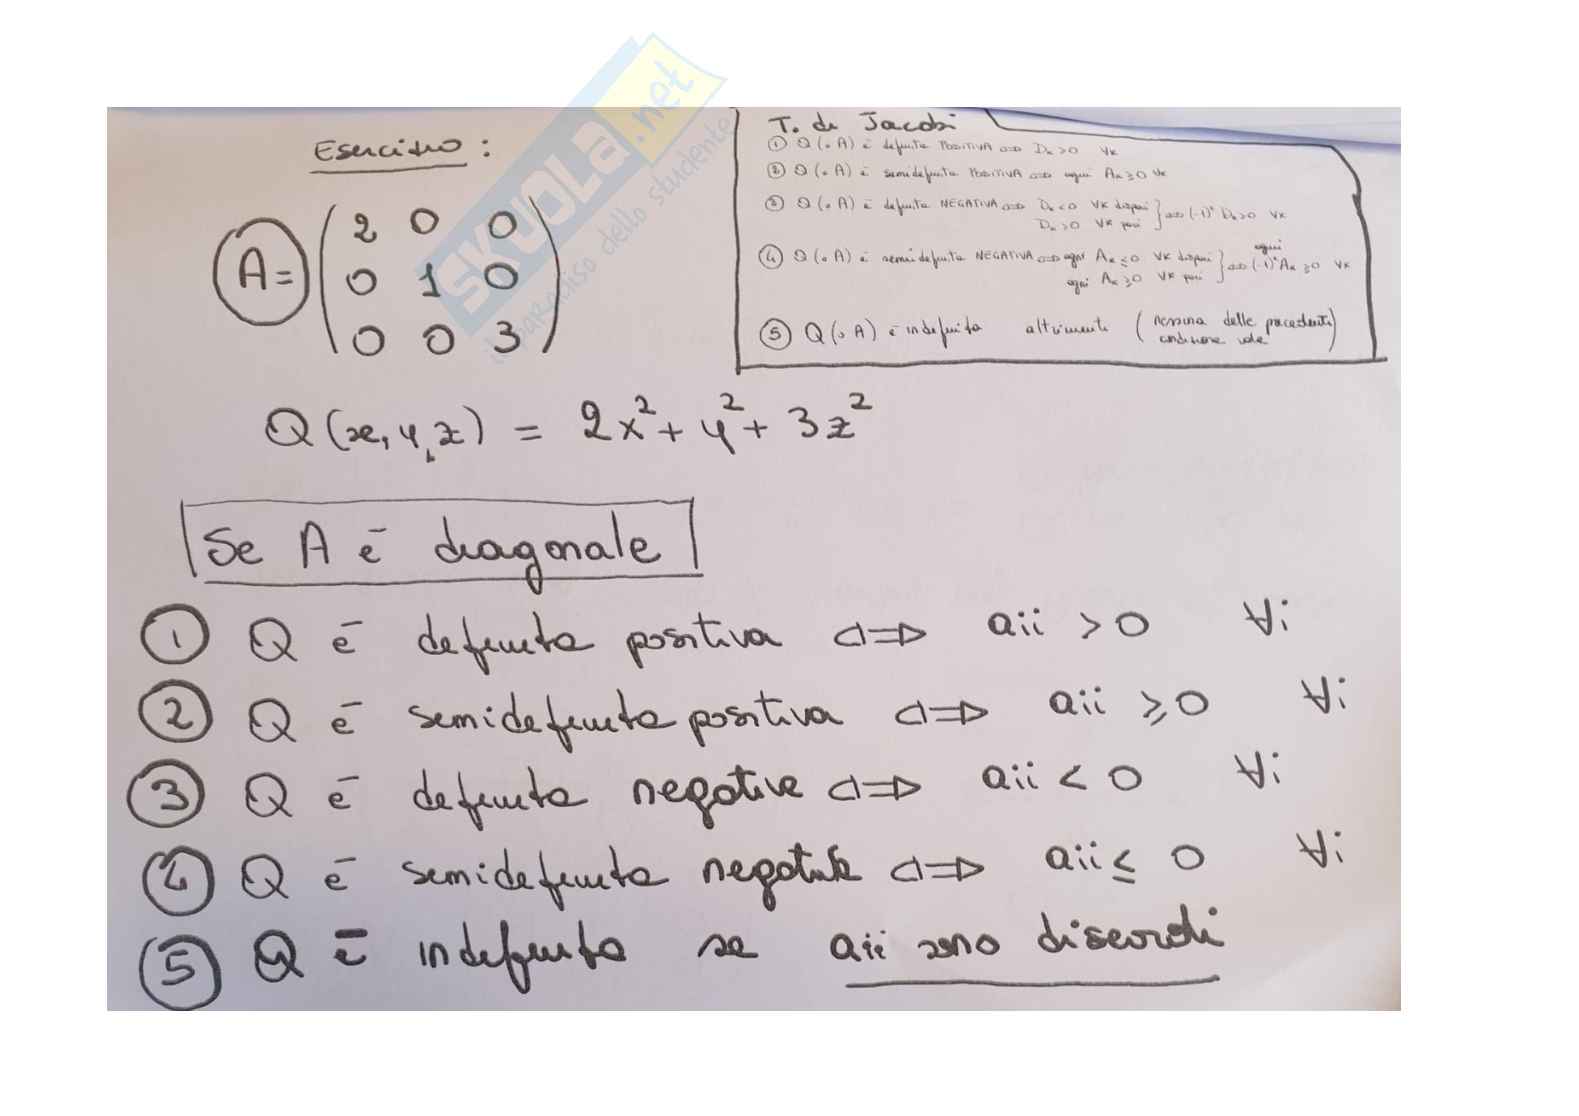 Esercizio :
A = ( 2 0 0
0 1 0
0 0 3 )
T. di Jacobi
① Q (o A) è definita POSITIVA ⇔ Dₖ > 0 ∀k
② Q (o A) è semidefinita POSITIVA ⇔ ogni Aₖ ≥ 0 ∀k
③ Q (o A) è definita NEGATIVA ⇔ Dₖ < 0 ∀k dispari
Dₖ > 0 ∀k pari } ⇔ (-1)ᵏ Dₖ > 0 ∀k
④ Q (o A) è semidefinita NEGATIVA ⇔ ogni Aₖ ≤ 0 ∀k dispari
ogni Aₖ ≥ 0 ∀k pari } ⇔ ogni (-1)ᵏ Aₖ ≥ 0 ∀k
⑤ Q (o A) è indefinita altrimenti ( nessuna delle precedenti
condizione vale )
Q (x, y, z) = 2x² + y² + 3z²
Se A è diagonale
① Q è definita positiva ⇔ aii > 0 ∀i
② Q è semidefinita positiva ⇔ aii ≥ 0 ∀i
③ Q è definita negativa ⇔ aii < 0 ∀i
④ Q è semidefinita negativa ⇔ aii ≤ 0 ∀i
⑤ Q è indefinita se aii sono discordi
SKUOLA.net
il paradiso dello studente